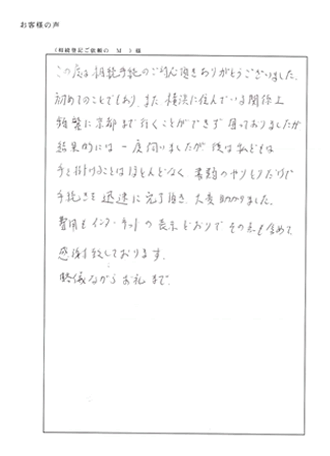 お客様の声
(相続登記ご依頼の M )様
この度は相続手続のご対応頂きありがとうございました。
初めてのことでもあり、また横浜に住んでいる関係上
頻繁に京都まで行くことができず困っておりましたが
結果的には一度伺いましたが、後は私どもは
手を掛けることはほとんどなく書類のやりとりだけで
手続きを迅速に完了頂き、大変助かりました。
費用もインターネットの表示どおりでその点も含めて
感謝致しております。
略儀ながらお礼まで。